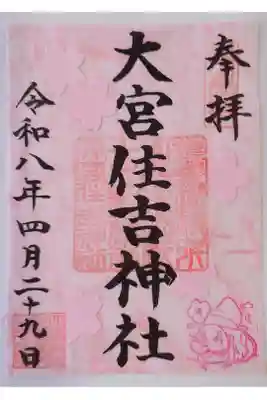 奉拝
大宮住吉神社
令和八年四月二十九日